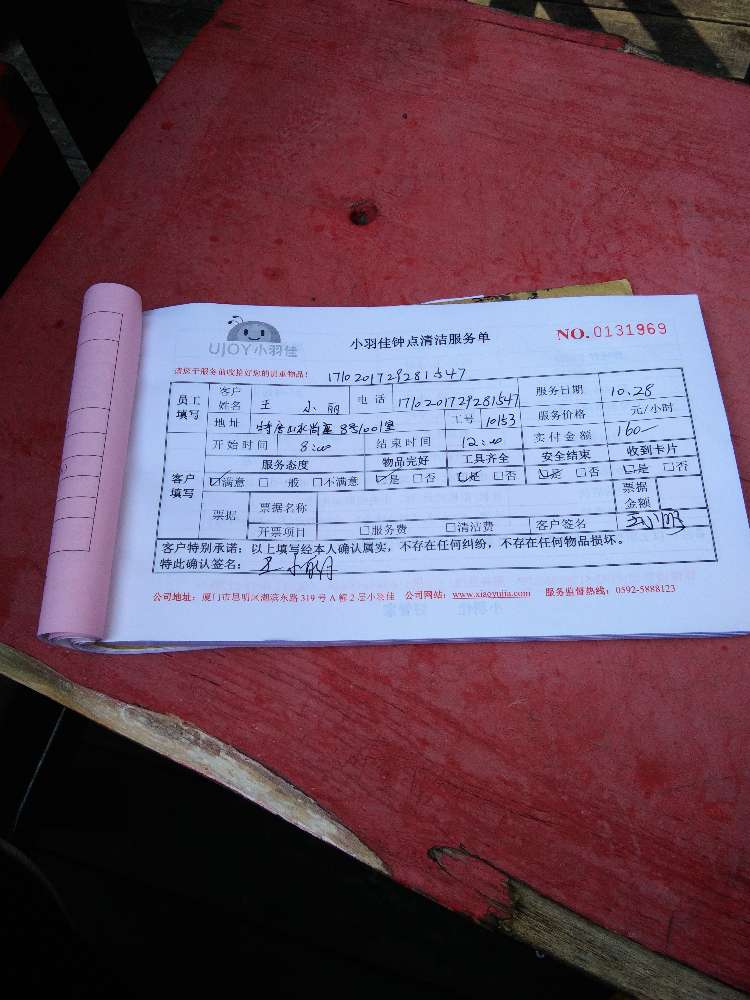 UJOY小羽佳
小羽佳钟点清洁服务单
NO.0131969
请您于服务前收拾好您的贵重物品! 1710201729281547
员工填写 客户姓名 王小丽 电话 1710201729281547 服务日期 10.28
地址 8号1001室 工号 10153 服务价格 元/小时
开始时间 8:00 结束时间 12:00 实付金额 160
客户填写 服务态度 物品完好 工具齐全 安全结束 收到卡片
☑满意 □一般 □不满意 ☑是 □否 ☑是 □否 ☑是 □否 ☑是 □否
票据 票据名称 票据金额
开票项目 □服务费 □清洁费 客户签名 王小丽
客户特别承诺:以上填写经本人确认属实,不存在任何纠纷,不存在任何物品损坏。
特此确认签名: 王小丽
公司地址:厦门市思明区湖滨东路319号A幢2层小羽佳 公司网站:www.xiaoyujia.com 服务监督热线:0592-5888123